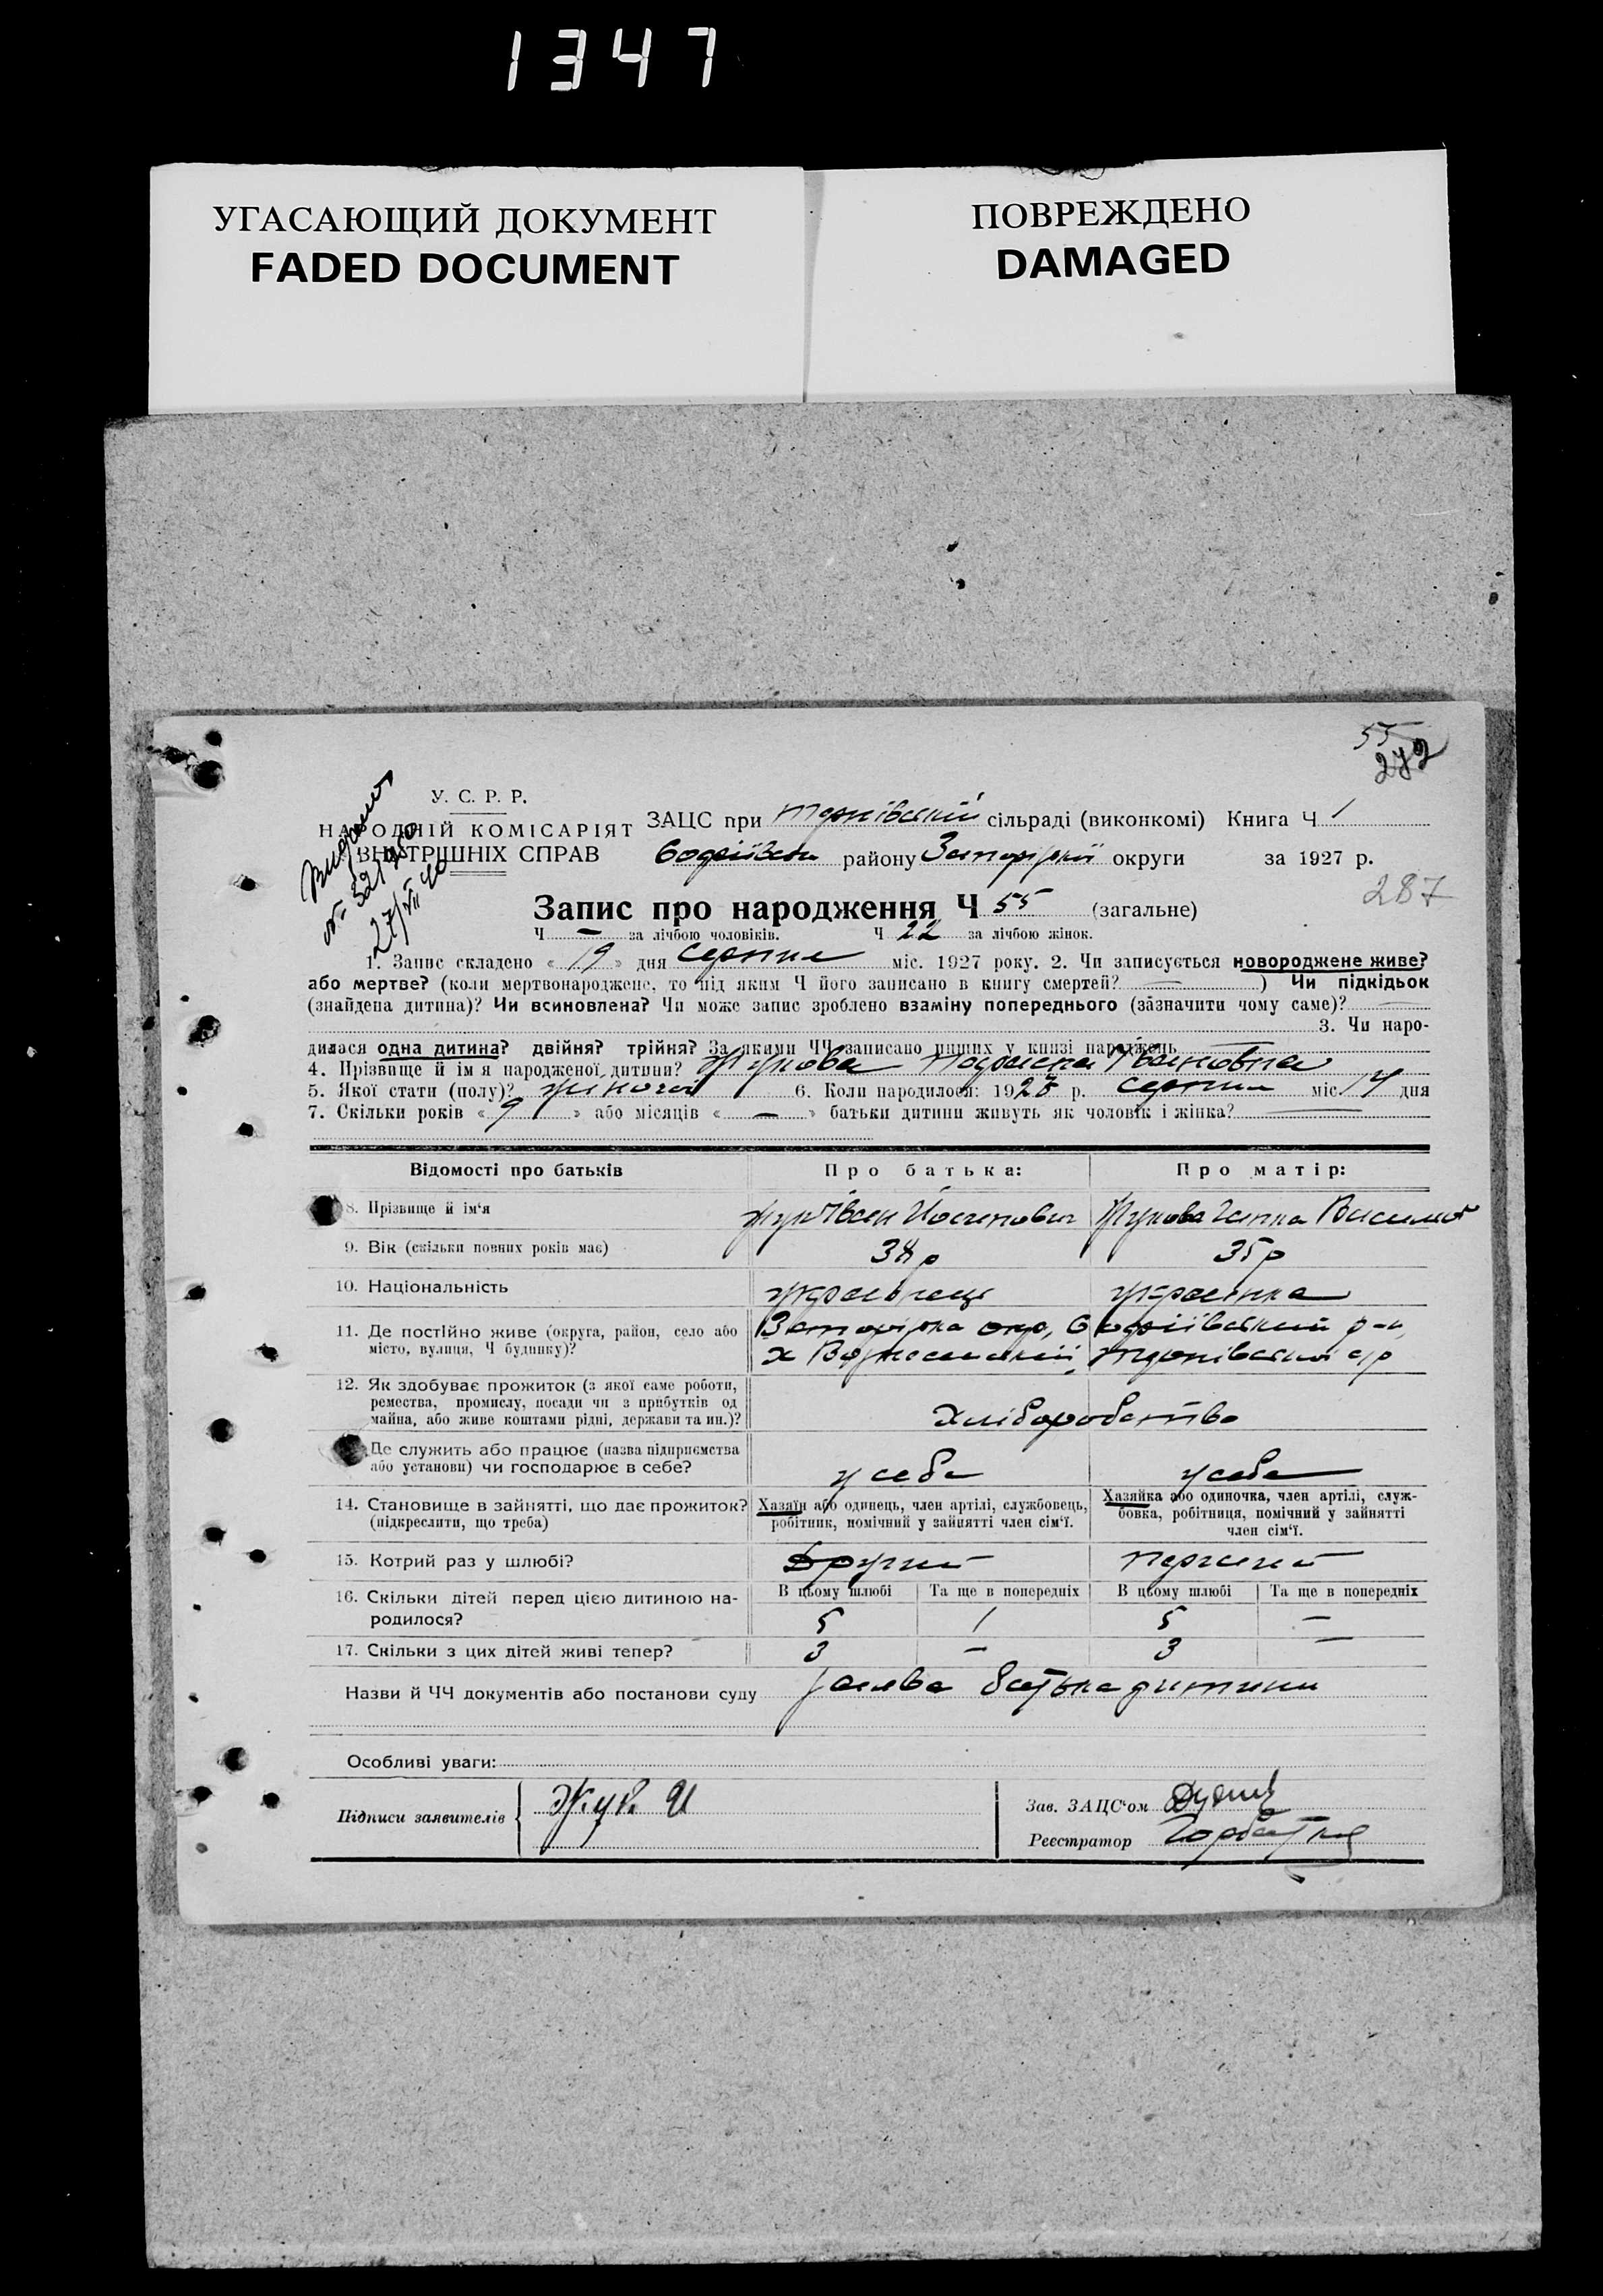 1347
УГАСАЮЩИЙ ДОКУМЕНТ
FADED DOCUMENT
ПОВРЕЖДЕНО
DAMAGED
55
272
У. С. Р. Р.
НАРОДНІЙ КОМІСАРІЯТ
ВНУТРІШНІХ СПРАВ
Видано
27/VII 40
ЗАЦС при сільраді (виконкомі) Книга Ч 1
району округи за 1927 р.
287
Запис про народження Ч 55 (загальне)
Ч — за лічбою чоловіків. Ч 22 за лічбою жінок.
1. Запис складено « 19 » дня серпня міс. 1927 року. 2. Чи записується новороджене живе?
або мертве? (коли мертвонароджене, то під яким Ч його записано в книгу смертей? — ) Чи підкідьок
(знайдена дитина)? Чи всиновлена? Чи може запис зроблено взаміну попереднього (зазначити чому саме)? —
3. Чи наро-
дилася одна дитина? двійня? трійня? За якими ЧЧ записано инших у книзі народжень
4. Прізвище й ім я народженої дитини? Жукова Івановна
5. Якої стати (полу)? жіночої 6. Коли народилося: 1927 р. серпня міс 14 дня
7. Скільки років « 9 » або місяців « — » батьки дитини живуть як чоловік і жінка? —
Відомості про батьків
Про батька:
Про матір:
8. Прізвище й ім‘я Жук Іван Йосипович Жукова Ганна
9. Вік (скільки повних років має) 38 р 35 р
10. Національність українець українка
11. Де постійно живе (округа, район, село або
місто, вулиця, Ч будинку)?
12. Як здобуває прожиток (з якої саме роботи,
ремества, промислу, посади чи з прибутків од
майна, або живе коштами рідні, держави та ин.)?
Хліборобство
Де служить або працює (назва підприємства
або установи) чи господарює в себе?
у себе у себе
14. Становище в зайнятті, що дає прожиток?
(підкреслити, що треба)
Хазяїн або одинець, член артілі, службовець,
робітник, помічний у зайнятті член сім‘ї.
Хазяйка або одиночка, член артілі, служ-
бовка, робітниця, помічний у зайнятті
член сім‘ї.
15. Котрий раз у шлюбі? Другий Перший
16. Скільки дітей перед цією дитиною на-
родилося?
В цьому шлюбі Та ще в попередніх В цьому шлюбі Та ще в попередніх
5 1 5 —
17. Скільки з цих дітей живі тепер? 3 — 3 —
Назви й ЧЧ документів або постанови суду заява батька дитини
Особливі уваги:
Підписи заявителів Жук И
Зав. ЗАЦС‘ом
Реєстратор